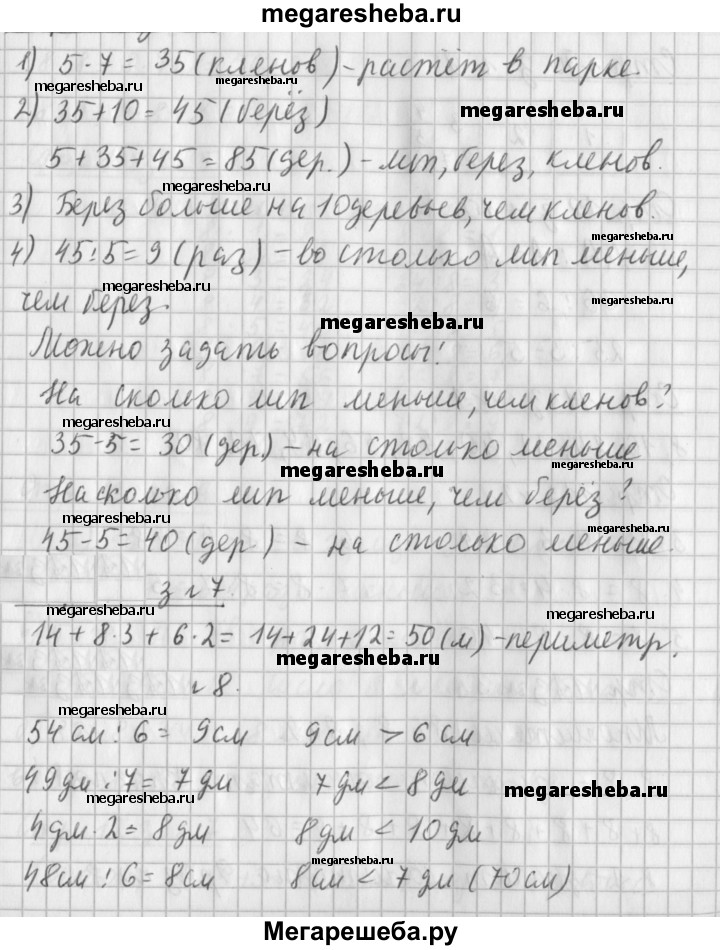 megaresheba.ru
1) 5·7 = 35 (кленов) – растёт в парке.
megaresheba.ru megaresheba.ru
2) 35+10 = 45 (берёз) megaresheba.ru
5+35+45 = 85 (дер.) – лип, берез, кленов.
megaresheba.ru
3) Берез больше на 10 деревьев, чем кленов.
megaresheba.ru
4) 45:5 = 9 (раз) – во столько лип меньше,
megaresheba.ru megaresheba.ru
чем берез.
megaresheba.ru
Можно задать вопросы:
На сколько лип меньше, чем кленов?
megaresheba.ru
35-5 = 30 (дер.) – на столько меньше
megaresheba.ru megaresheba.ru
На сколько лип меньше, чем берёз?
megaresheba.ru megaresheba.ru
45-5 = 40 (дер.) – на столько меньше.
з г 7.
megaresheba.ru megaresheba.ru
14 + 8·3 + 6·2 = 14+24+12 = 50 (м) – периметр.
megaresheba.ru
г 8.
megaresheba.ru
54 см : 6 = 9 см 9 см > 6 см
49 дм : 7 = 7 дм 7 дм < 8 дм
megaresheba.ru megaresheba.ru
4 дм · 2 = 8 дм 8 дм < 10 дм
megaresheba.ru
48 см : 6 = 8 см 8 см < 7 дм (70 см)
megaresheba.ru
Мегарешеба.ру